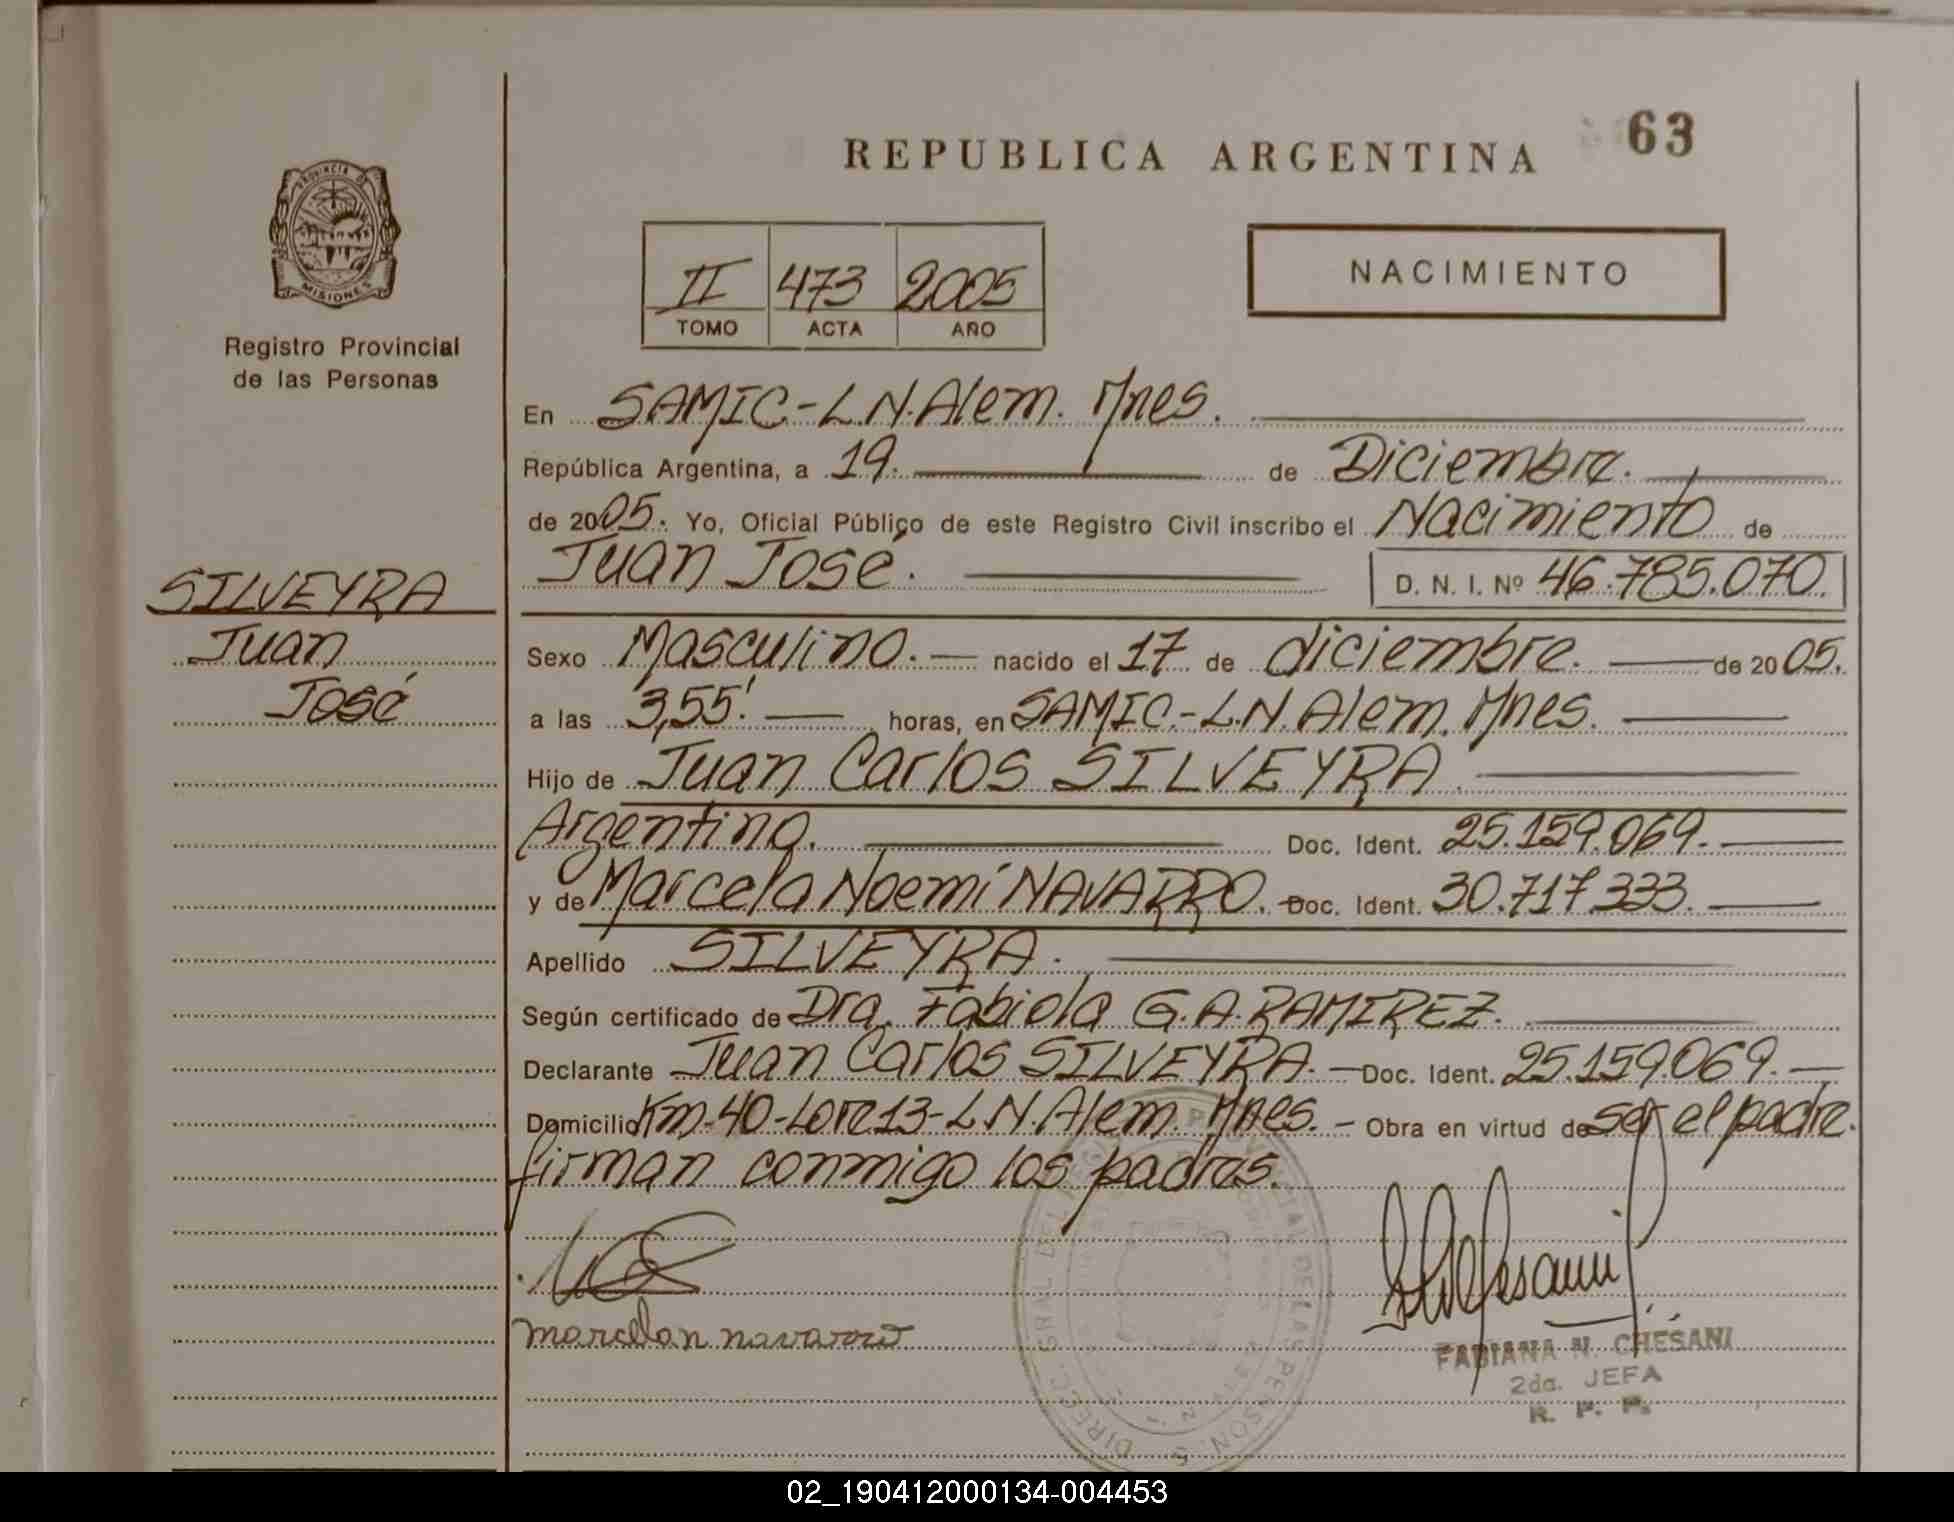 REPUBLICA ARGENTINA 63
PROVINCIA DE
MISIONES
Registro Provincial
de las Personas
II 473 2005
TOMO ACTA AÑO
NACIMIENTO
En SAMIC-L.N.Alem. Mnes.
República Argentina, a 19. de Diciembre.
de 2005. Yo, Oficial Público de este Registro Civil inscribo el Nacimiento de
Juan José. D. N. I. Nº 46.785.070.
SILVEYRA
Juan
José
Sexo Masculino. nacido el 17 de diciembre. de 2005.
a las 3,55'. horas, en SAMIC.-L.N.Alem. Mnes.
Hijo de Juan Carlos SILVEYRA
Argentino. Doc. Ident. 25.159.069.
y de Marcela Noemí NAVARRO. Doc. Ident. 30.717.333.
Apellido SILVEYRA.
Según certificado de Dra. Fabiola G.A.RAMIREZ.
Declarante Juan Carlos SILVEYRA. Doc. Ident. 25.159.069.
Domicilio Km-40-Lote13-L.N.Alem. Mnes. - Obra en virtud de ser el padre.
firman conmigo los padres.
marcela n navarro
FABIANA N. CHESANI
2da. JEFA
R. P. P.
02_190412000134-004453